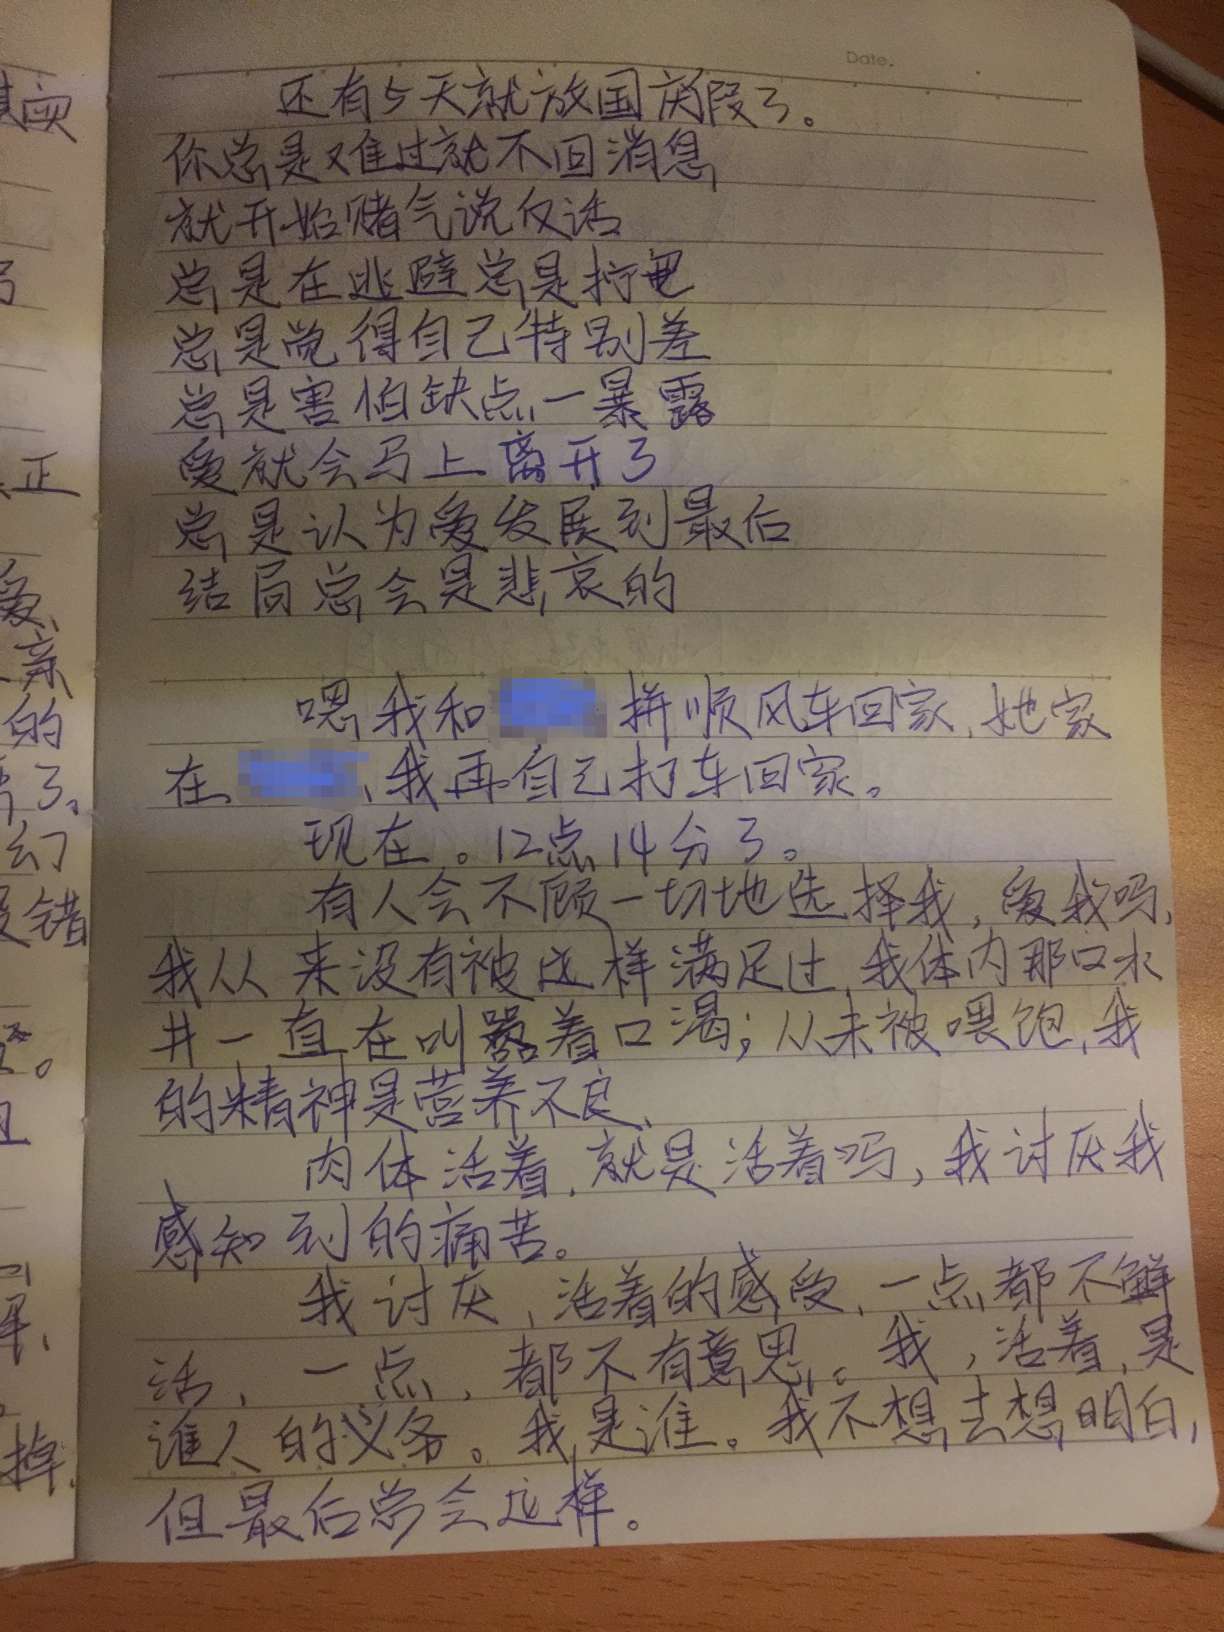 Date.
还有5天就放国庆假了。
你总是难过就不回消息
就开始赌气说反话
总是在逃避总是拧巴
总是觉得自己特别差
总是害怕缺点一暴露
爱就会马上离开了
总是认为爱发展到最后
结局总会是悲哀的
嗯,我和 拼顺风车回家,她家
在 、我再自己打车回家。
现在。12点14分了。
有人会不顾一切地选择我,爱我吗,
我从来没有被这样满足过,我体内那口水
井一直在叫嚣着口渴;从未被喂饱,我
的精神是营养不良、
肉体活着,就是活着吗,我讨厌我
感知到的痛苦。
我讨厌,活着的感受,一点都不鲜
活,一点,都不有意思。我,活着,是
谁人的义务。我是谁。我不想去想明白,
但最后总会这样。
正
爱、
亲
的
了。
幻
错
掉.